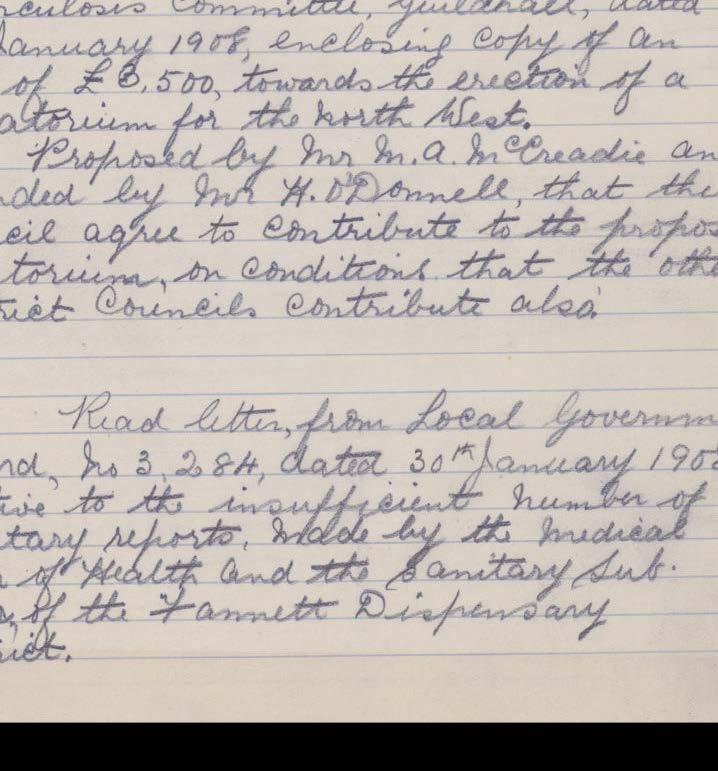 rculosis Committee, Guildhall, dated
January 1908, enclosing copy of an
of £3,500, towards the erection of a
atorium for the North West.
Proposed by Mr M.A. McCreadie an
nded by Mr H. O'Donnell, that the
cil agree to contribute to the propos
torium, on conditions that the othe
rict Councils contribute also.
Read letter, from Local Governm
rd, No 3,284, dated 30th January 1908
tive to the insufficient number of
tary reports, made by the Medical
of Health and the Sanitary Sub.
of the Fannett Dispensary
rict.